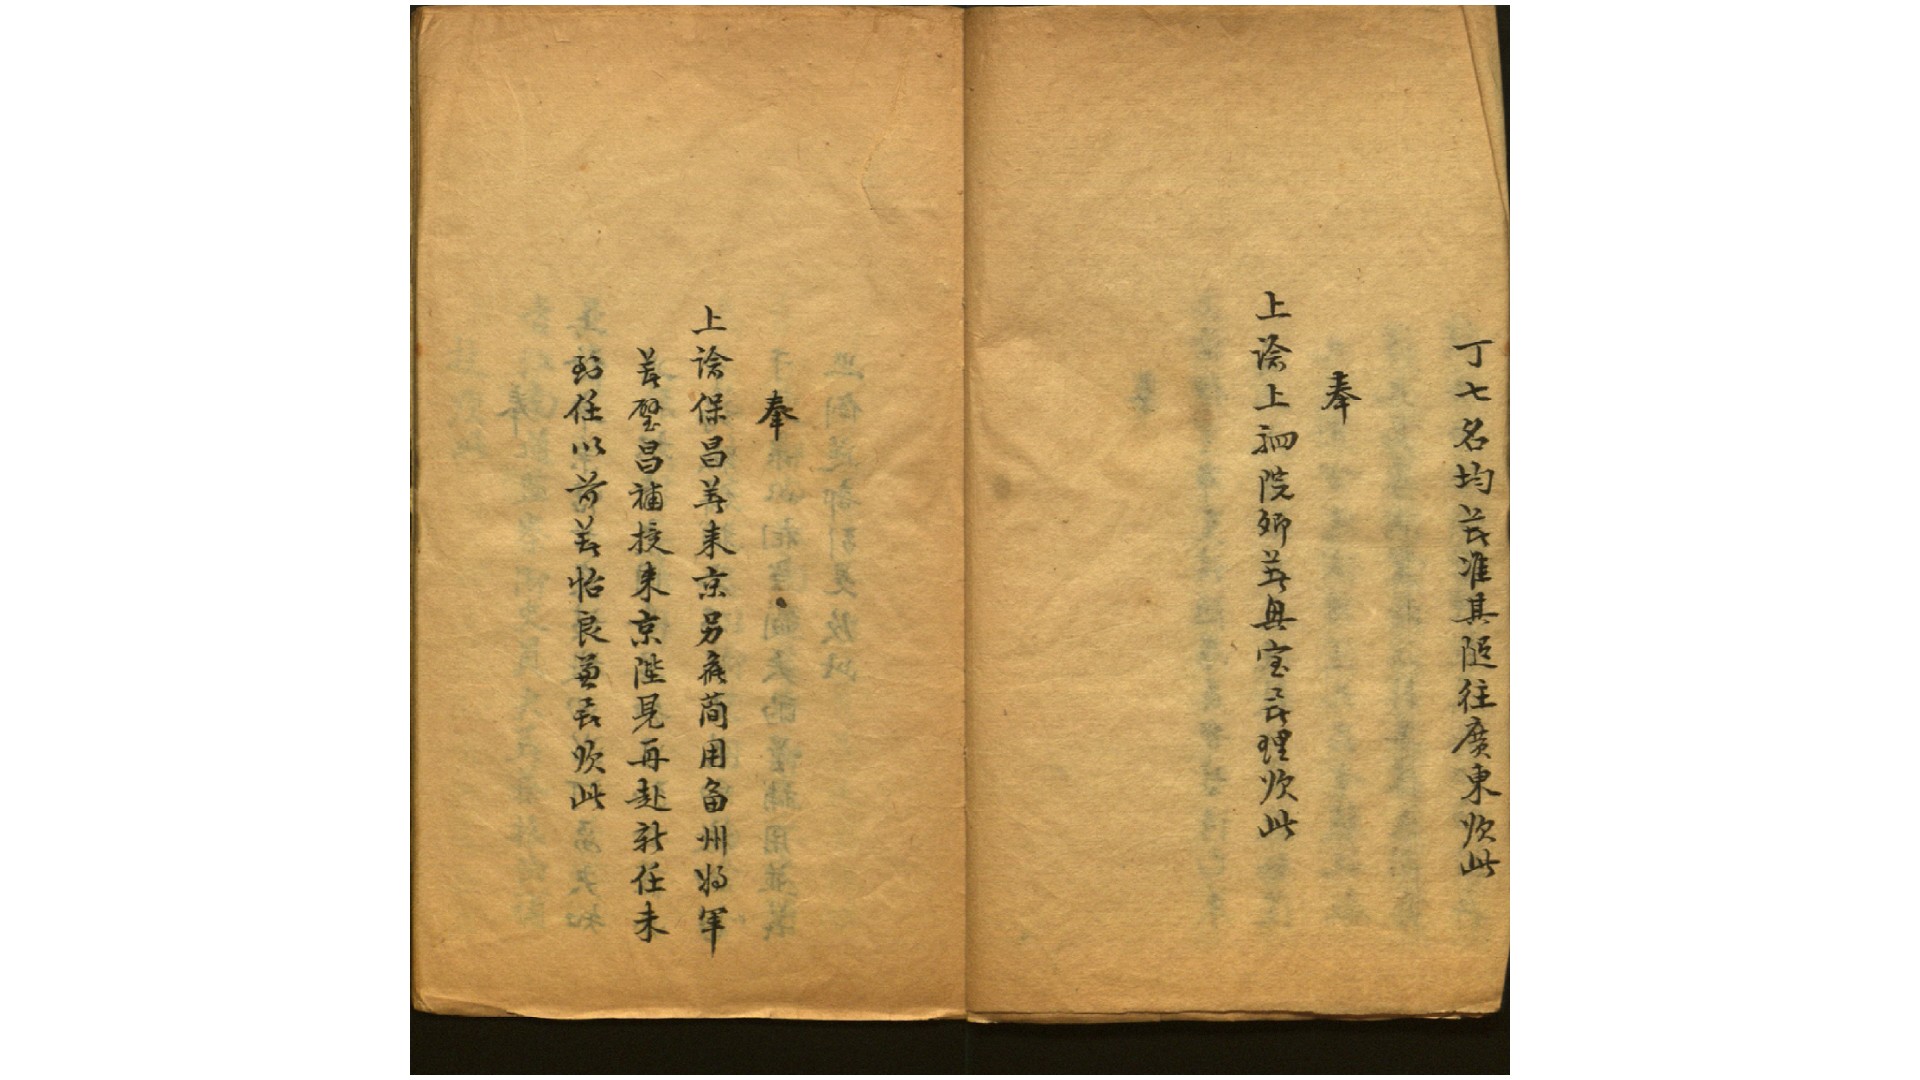 丁七名均着准其随往廣東欽此
奉
上諭上駟院卿着宝署理欽此
奉
上諭保昌着来京另候简用畐州将军
着璧昌補授来京陛見再赴新任未
到任以前着怡良兼署欽此